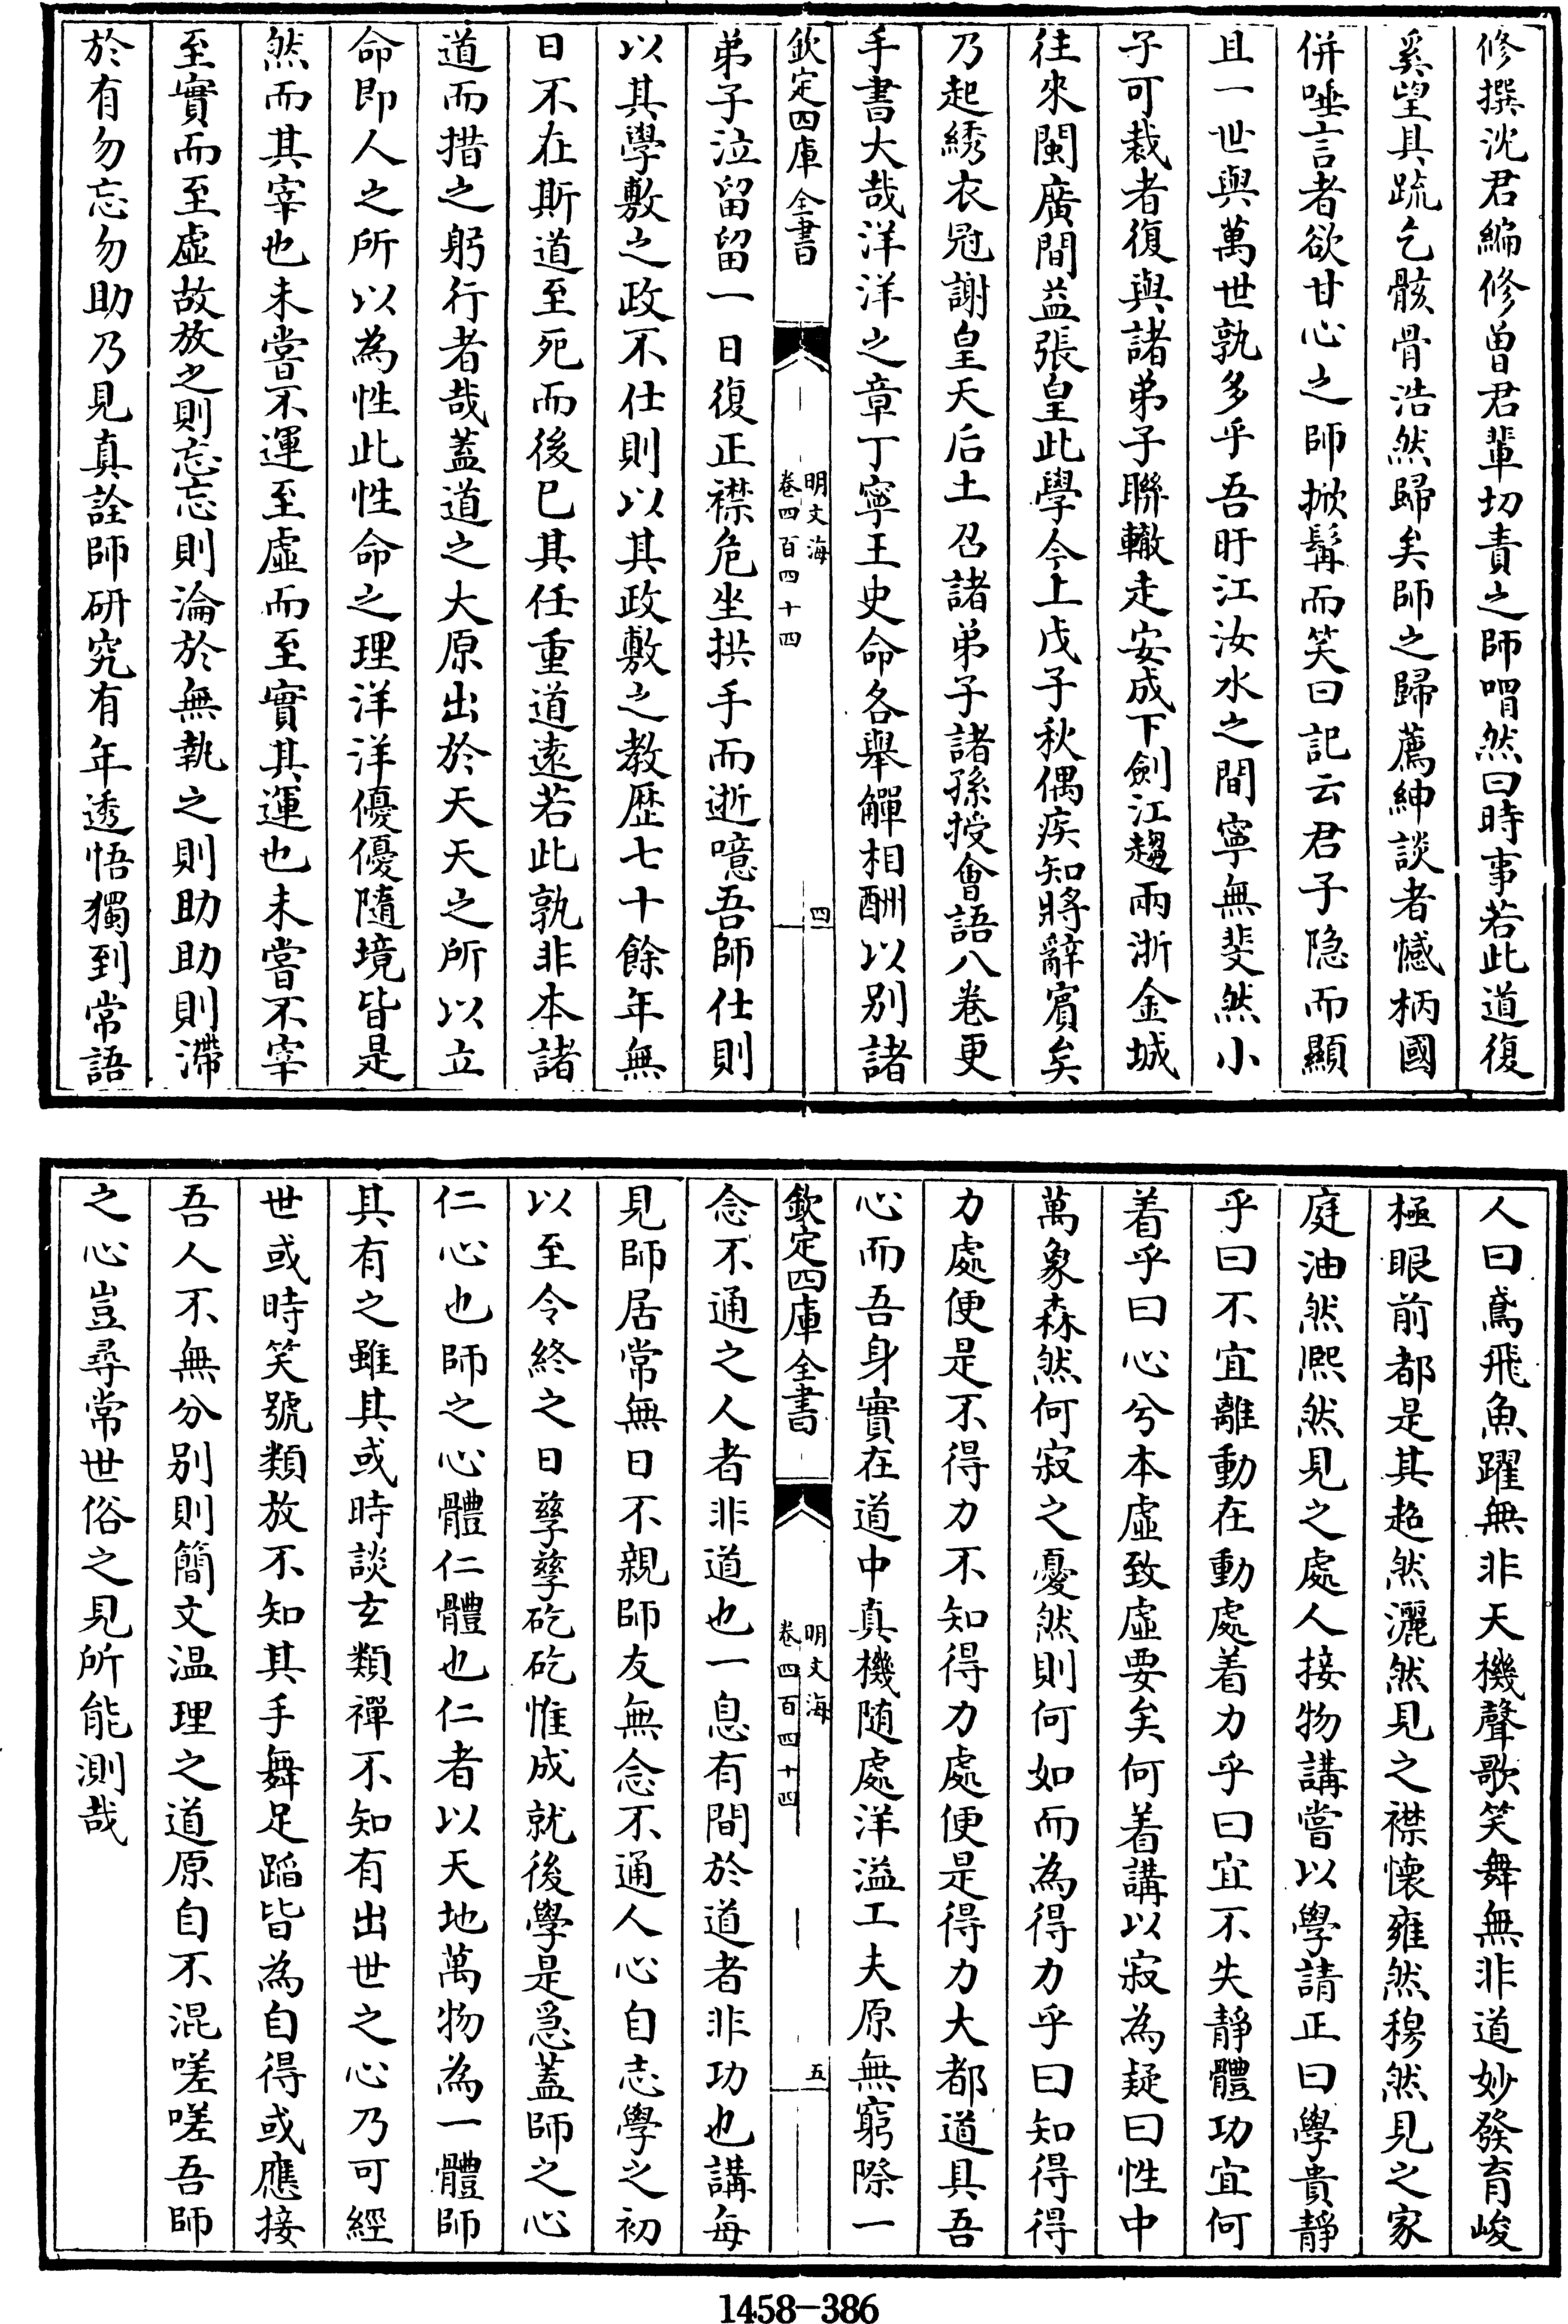 修撰沈君編修曾君輩切責之師喟然曰時事若此道復
奚望具疏乞骸骨浩然歸矣師之歸薦紳談者憾柄國
併唾言者欲甘心之師掀髯而笑曰記云君子隐而顯
且一世與萬世孰多乎吾盱江汝水之間寧無斐然小
子可裁者復與諸弟子聯轍走安成下劍江趨兩浙金城
往來閩廣間益張皇此學今上戊子秋偶疾知將辭賓矣
乃起綉衣冠謝皇天后土召諸弟子諸孫授會語八卷更
手書大哉洋洋之章丁寧王史命各舉觶相酬以别諸
欽定四庫全書
明文海
卷四百四十四
四
弟子泣留留一日復正襟危坐拱手而逝噫吾師仕則
以其學敷之政不仕則以其政敷之教歷七十餘年無
日不在斯道至死而後已其任重道逺若此孰非本諸
道而措之躬行者哉蓋道之大原出於天天之所以立
命即人之所以為性此性命之理洋洋優優隨境皆是
然而其宰也未嘗不運至虛而至實其運也未嘗不宰
至實而至虛故放之則忘忘則淪於無執之則助助則滯
於有勿忘勿助乃見真詮師研究有年透悟獨到常語
人曰鳶飛魚躍無非天機聲歌笑舞無非道妙發育峻
極眼前都是其超然灑然見之襟懷雍然穆然見之家
庭油然熙然見之處人接物講嘗以學請正曰學貴靜
乎曰不宜離動在動處着力乎曰宜不失靜體功宜何
着乎曰心兮本虛致虛要矣何着講以寂為疑曰性中
萬象森然何寂之憂然則何如而為得力乎曰知得得
力處便是不得力不知得力處便是得力大都道具吾
心而吾身實在道中真機随處洋溢工夫原無窮際一
欽定四庫全書
明文海
卷四百四十四
五
念不通之人者非道也一息有間於道者非功也講每
見師居常無日不親師友無念不通人心自志學之初
以至令終之日孳孳矻矻惟成就後學是急蓋師之心
仁心也師之心體仁體也仁者以天地萬物為一體師
其有之雖其或時談玄類禪不知有出世之心乃可經
世或時笑號類放不知其手舞足蹈皆為自得或應接
吾人不無分别則簡文温理之道原自不混嗟嗟吾師
之心豈尋常世俗之見所能測哉
1458-386